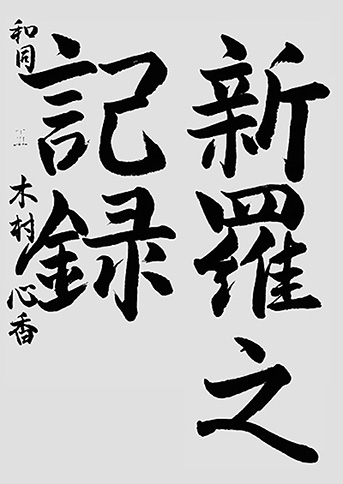 新羅之
記録
和同
木村心香